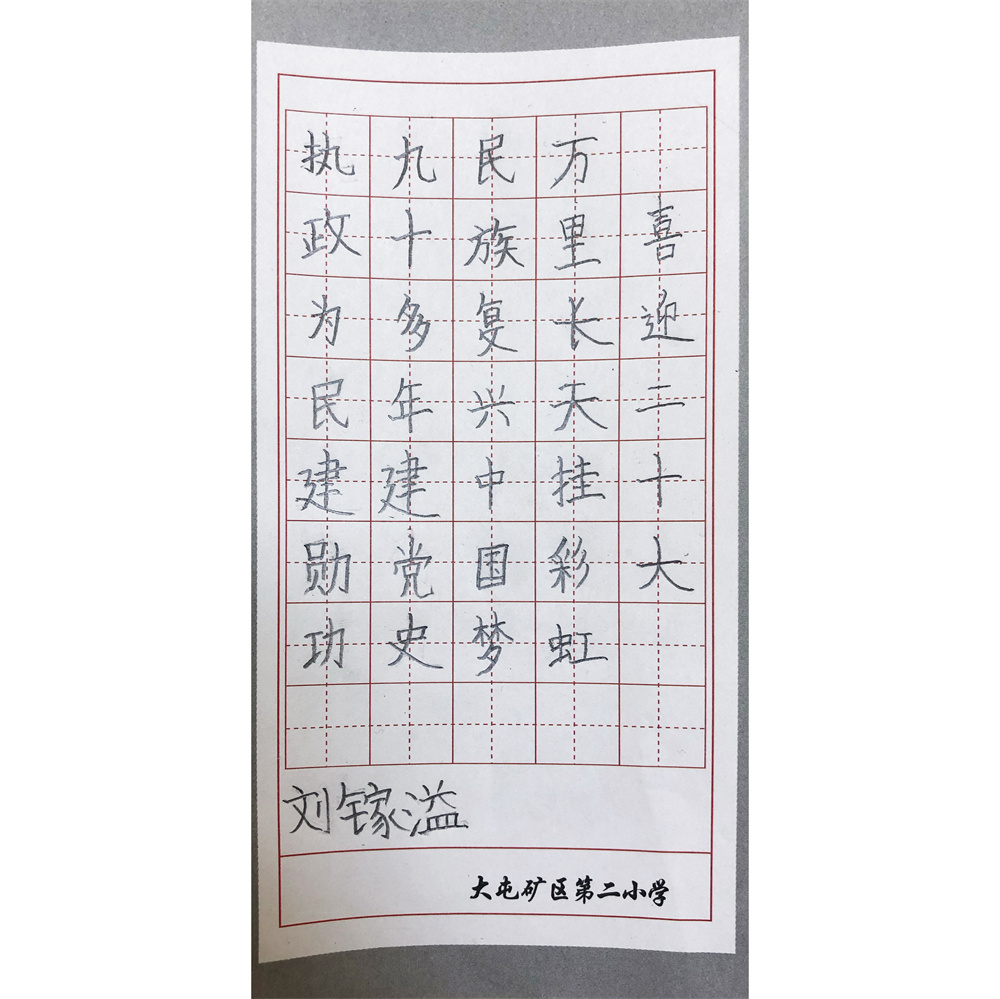 喜迎二十大
万里长天挂彩虹
民族复兴中国梦
九十多年建党史
执政为民建勋功
刘镓溢
大屯矿区第二小学